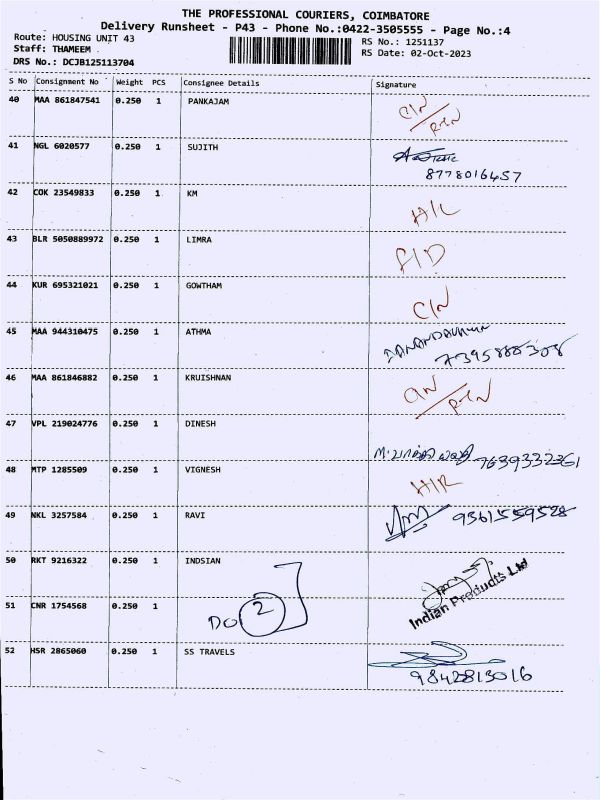 THE PROFESSIONAL COURIERS, COIMBATORE
Delivery Runsheet - P43 - Phone No.:0422-3505555 - Page No.:4
Route: HOUSING UNIT 43
RS No.: 1251137
Staff: THAMEEM
RS Date: 02-Oct-2023
DRS No.: DCJB125113704
S No Consignment No Weight PCS Consignee Details Signature
40 MAA 861847541 0.250 1 PANKAJAM C/N / RTN
41 NGL 6020577 0.250 1 SUJITH
8778016457
42 COK 23549833 0.250 1 KM H/L
43 BLR 5050889972 0.250 1 LIMRA P/D
44 KUR 695321021 0.250 1 GOWTHAM C/N
45 MAA 944310475 0.250 1 ATHMA
7395888308
46 MAA 861846882 0.250 1 KRUISHNAN C/N / RTN
47 VPL 219024776 0.250 1 DINESH
7639332361
48 MTP 1285509 0.250 1 VIGNESH H/R
49 NKL 3257584 0.250 1 RAVI 9361559528
50 RKT 9216322 0.250 1 INDSIAN
Indian Products Ltd
51 CNR 1754568 0.250 1 DO 2
52 HSR 2865060 0.250 1 SS TRAVELS
9842813016